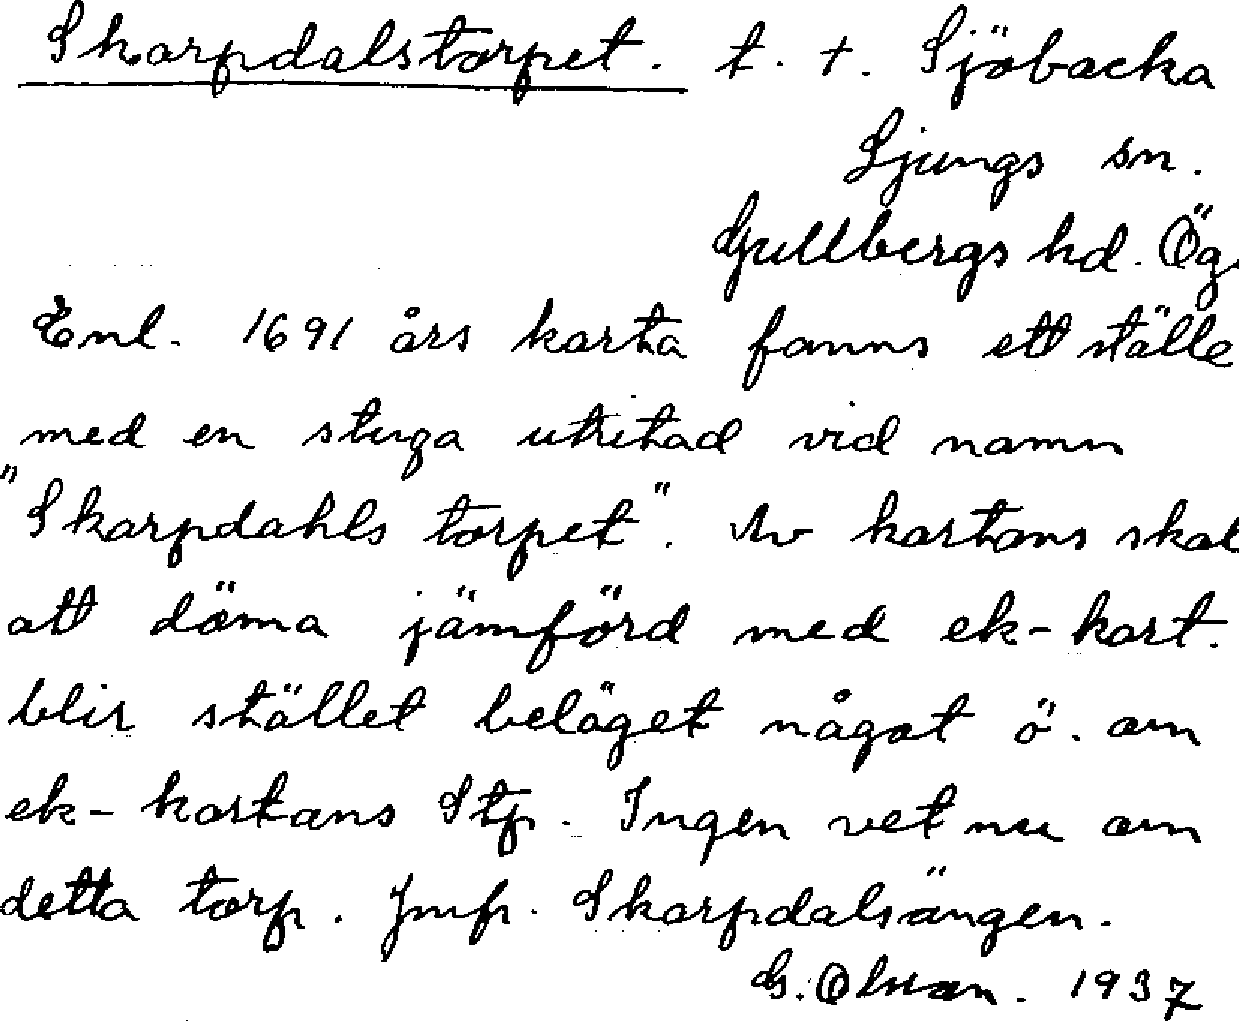 Skarpdalstorpet. t. +. Sjöbacka
Ljungs sn.
Gullbergs hd. Ög.
Enl. 1691 års karta fanns ett ställe
med en stuga utritad vid namn
"Skarpdahls torpet". Av kartans skal
att döma jämförd med ek-kart.
blir stället beläget något ö. om
ek-kartans Stp. Ingen vet nu om
detta torp. Jmfr. Skarpdalsängen.
G. Olsson. 1937